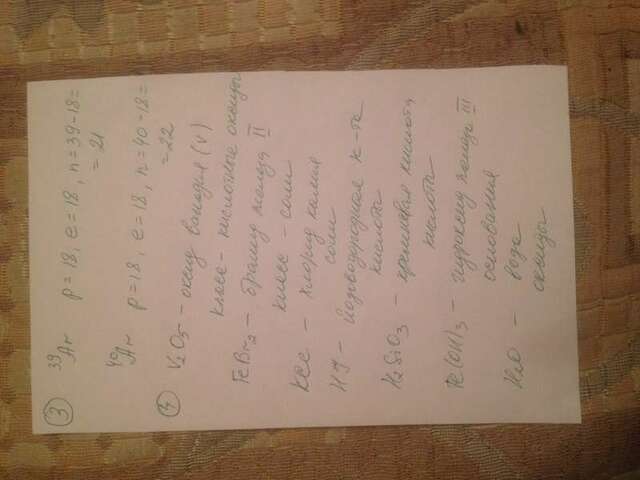 3 39Ar p = 18, e = 18, n = 39-18 =
= 21
40Ar p = 18, e = 18, n = 40-18 =
= 22
4 V2O5 - оксид ванадия (V)
класс - кислотные оксиды
FeBr2 - бромид железа II
класс - соли
KCl - хлорид калия
соли
HJ - йодоводородная к-та
кислоты
H2SiO3 - кремневая кислота
кислоты
Fe(OH)3 - гидроксид железа III
основания
H2O - вода
оксиды